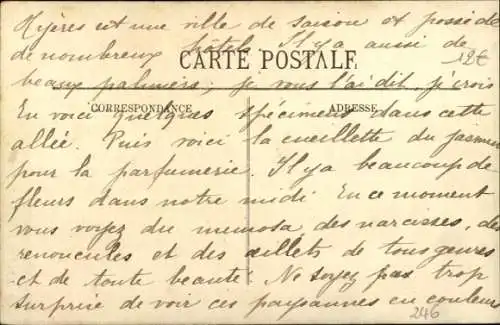 Hyères est une ville de saison et possède
de nombreux hôtels. Il y a aussi de
CARTE POSTALE
12€
beaux palmiers; je vous l'ai dit, je crois
CORRESPONDANCE
ADRESSE
En voici quelques spécimens dans cette
allée. Puis voici la cueillette du jasmin
pour la parfumerie. Il y a beaucoup de
fleurs dans notre midi. En ce moment
vous voyez du mimosa, des narcisses, des
renoncules et des œillets de tous genres
et de toute beauté. Ne soyez pas trop
surprise de voir ces paysannes en couleurs
246